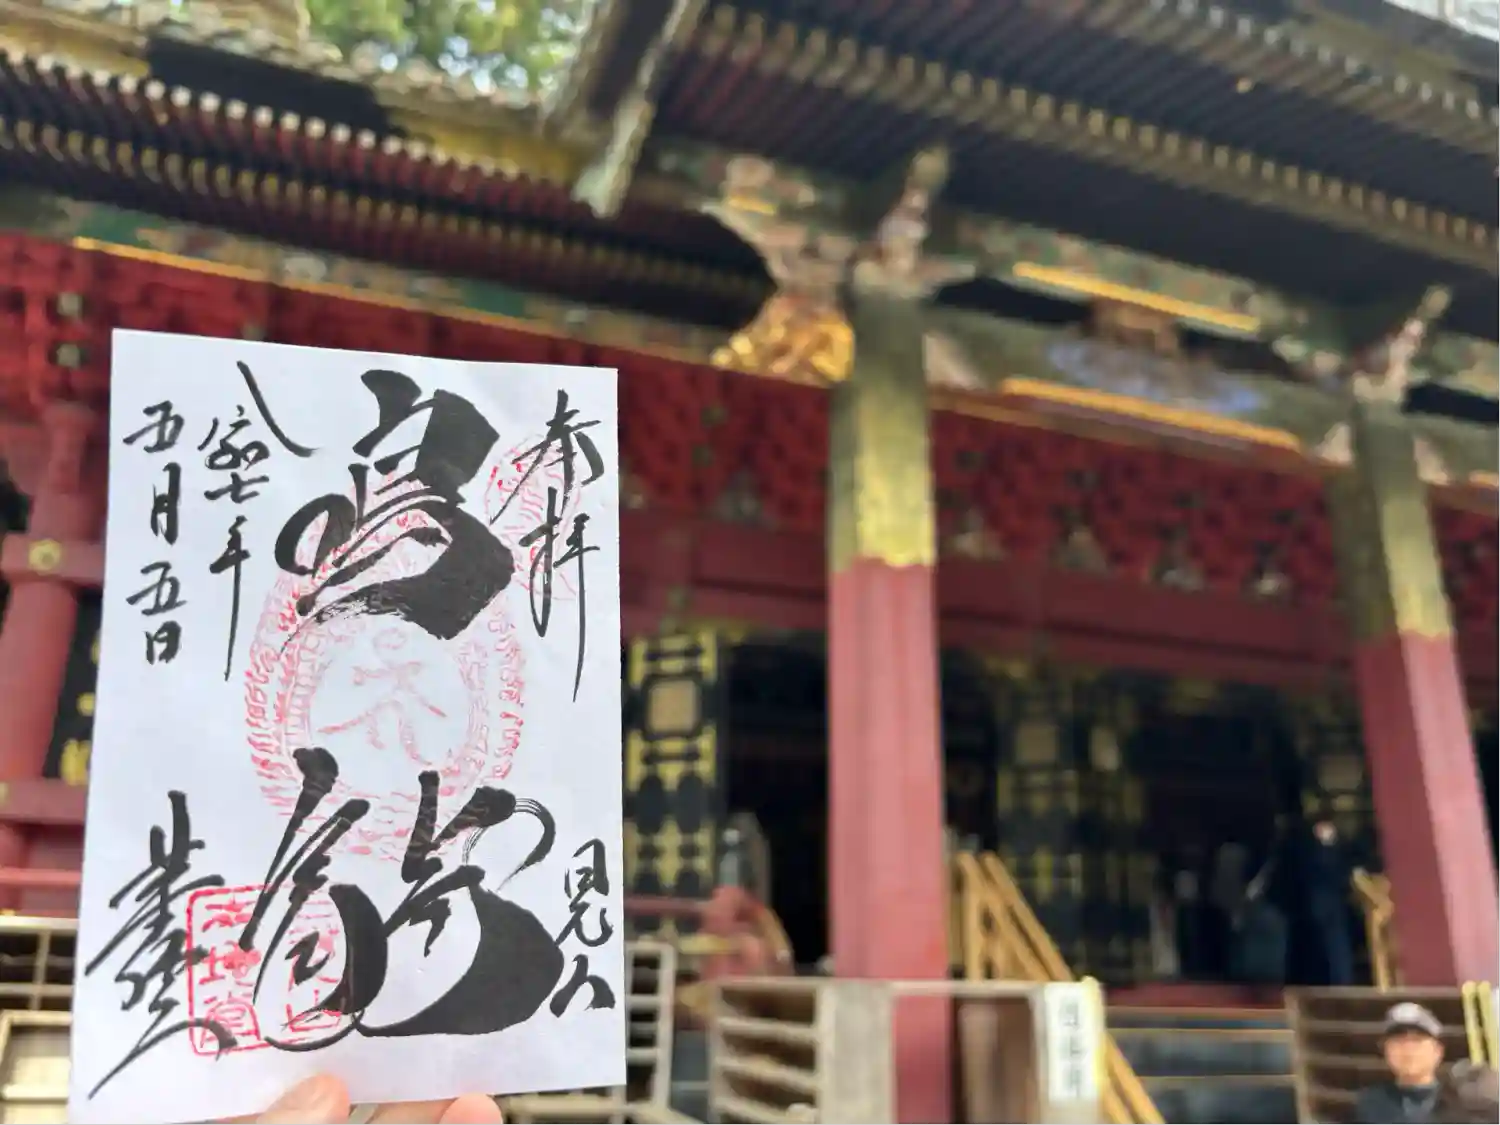 奉拝
日光山
鳴龍
令和七年
五月五日
薬師堂
本地堂